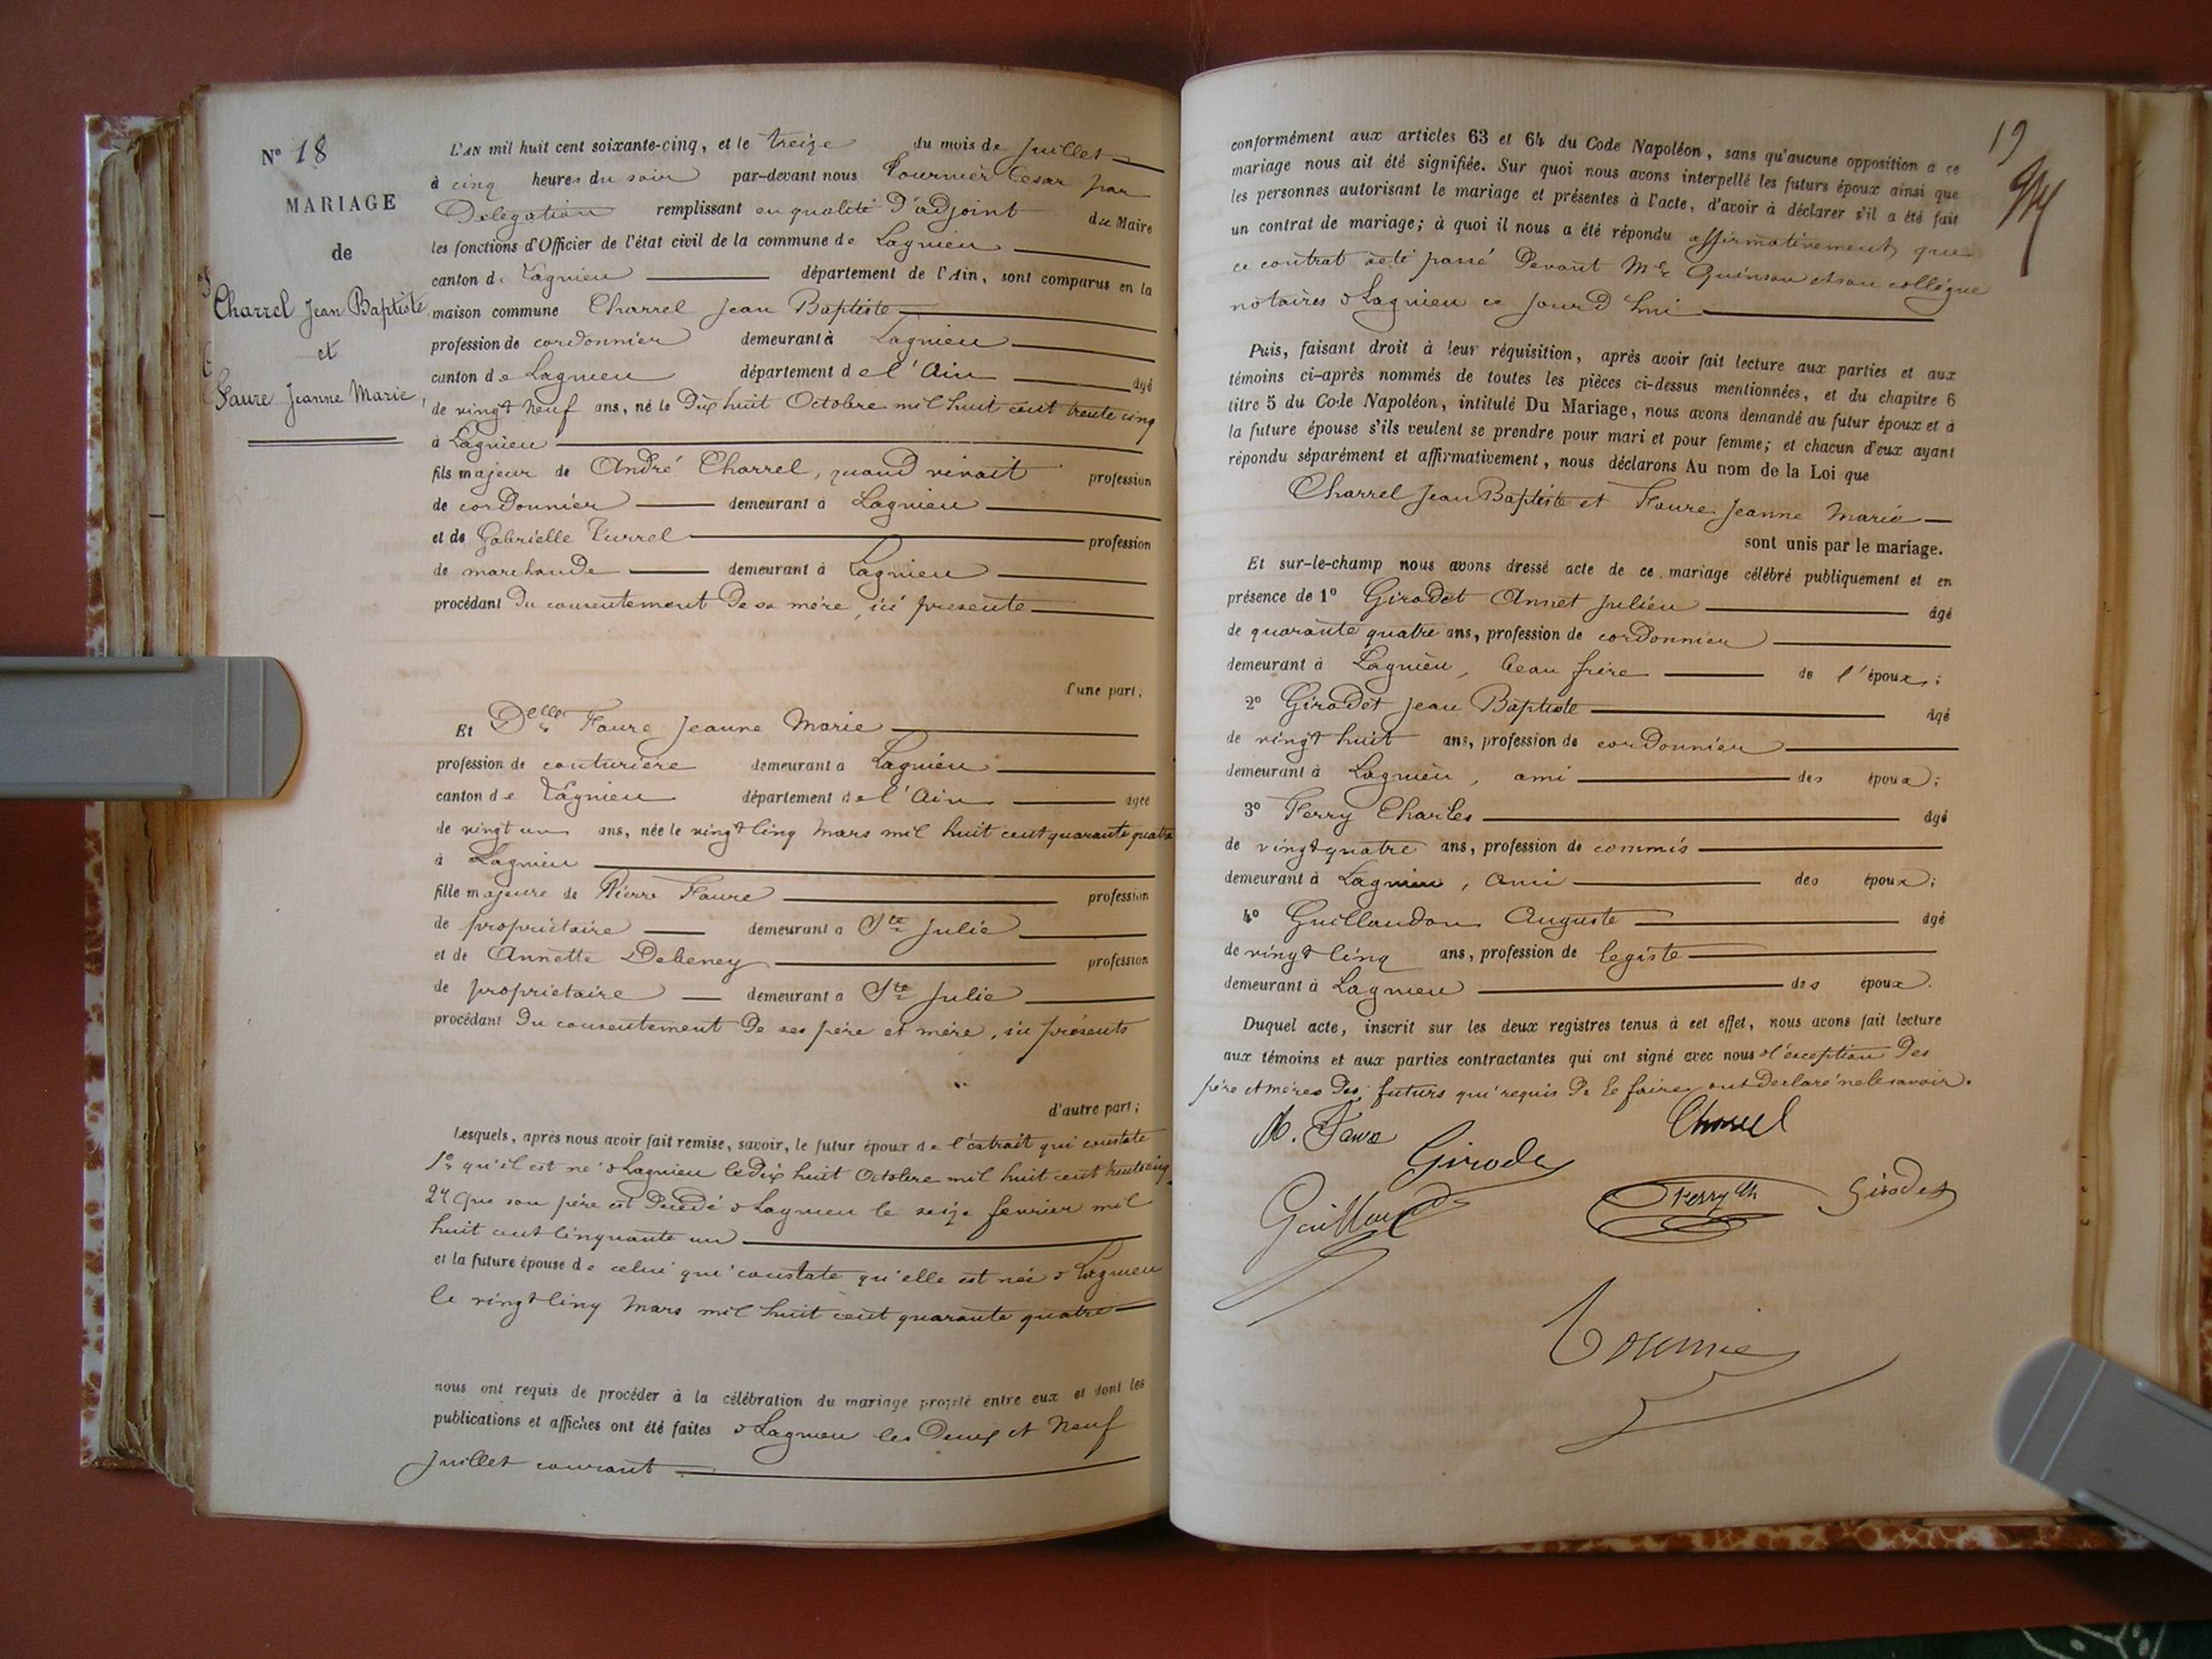 N° 18
MARIAGE
de
Charrel Jean Baptiste
et
Faure Jeanne Marie,
L'AN mil huit cent soixante-cinq, et le treize du mois de Juillet
à cinq heures du soir par-devant nous Tournier Cesar par
Delegation remplissant en qualité D'adjoint du Maire
les fonctions d'Officier de l'état civil de la commune de Lagnieu
canton de Lagnieu département de l'Ain, sont comparus en la
maison commune Charrel Jean Baptiste
profession de cordonnier demeurant à Lagnieu
canton de Lagnieu département de l'Ain âgé
de vingt Neuf ans, né le Dix huit Octobre mil huit cent trente cinq
à Lagnieu
fils majeur de André Charrel, quand vivait profession
de cordonnier demeurant à Lagnieu
et de Gabrielle Turrel profession
de marchande demeurant à Lagnieu
procédant Du consentement De sa mère, ici presente
d'une part;
Et Delle Faure Jeanne Marie
profession de couturière demeurant à Lagnieu
canton de Lagnieu département de l'Ain âgée
de vingt un ans, née le vingt Cinq Mars mil huit cent quarante quatre
à Lagnieu
fille majeure de Pierre Faure profession
de propriétaire demeurant à Ste Julie
et de Annette Debeney profession
de propriétaire demeurant à Ste Julie
procédant Du consentement De ses père et mère, ici présents
d'autre part;
Lesquels, après nous avoir fait remise, savoir, le futur époux de l'extrait qui constate
1° qu'il est né à Lagnieu le Dix huit Octobre mil huit cent trente cinq
2° Que son père est Décédé à Lagnieu le seize fevrier mil
huit cent Cinquante un
et la future épouse de celui qui constate qu'elle est née à Lagnieu
le vingt Cinq Mars mil huit cent quarante quatre
nous ont requis de procéder à la célébration du mariage projeté entre eux et dont les
publications et affiches ont été faites à Lagnieu les Deux et Neuf
Juillet courant
19
conformément aux articles 63 et 64 du Code Napoléon, sans qu'aucune opposition a ce
mariage nous ait été signifiée. Sur quoi nous avons interpellé les futurs époux ainsi que
les personnes autorisant le mariage et présentes à l'acte, d'avoir à déclarer s'il a été fait
un contrat de mariage; à quoi il nous a été répondu affirmativement, que
ce contrat a été passé Devant Me Quinson et son collégue
notaires à Lagnieu ce jourD hui
Puis, faisant droit à leur réquisition, après avoir fait lecture aux parties et aux
témoins ci-après nommés de toutes les pièces ci-dessus mentionnées, et du chapitre 6
titre 5 du Code Napoléon, intitulé Du Mariage, nous avons demandé au futur époux et à
la future épouse s'ils veulent se prendre pour mari et pour femme; et chacun d'eux ayant
répondu séparément et affirmativement, nous déclarons Au nom de la Loi que
Charrel Jean Baptiste et Faure Jeanne Marie
sont unis par le mariage.
Et sur-le-champ nous avons dressé acte de ce mariage célébré publiquement et en
présence de 1° Girodet Annet Julien âgé
de quarante quatre ans, profession de cordonnier
demeurant à Lagnieu, beau frère de l'époux;
2° Girodet Jean Baptiste âgé
de vingt huit ans, profession de cordonnier
demeurant à Lagnieu, ami des époux;
3° Ferry Charles âgé
de vingt quatre ans, profession de commis
demeurant à Lagnieu, Ami des époux;
4° Guillaudon Auguste âgé
de vingt Cinq ans, profession de legiste
demeurant à Lagnieu des époux.
Duquel acte, inscrit sur les deux registres tenus à cet effet, nous avons fait lecture
aux témoins et aux parties contractantes qui ont signé avec nous à l'exception Des
père et mères Des futurs qui requis De le faire, ont Déclaré ne le savoir.
M. Faure
Charrel
Girodet
Ferry Ch
Girodet
Tournier